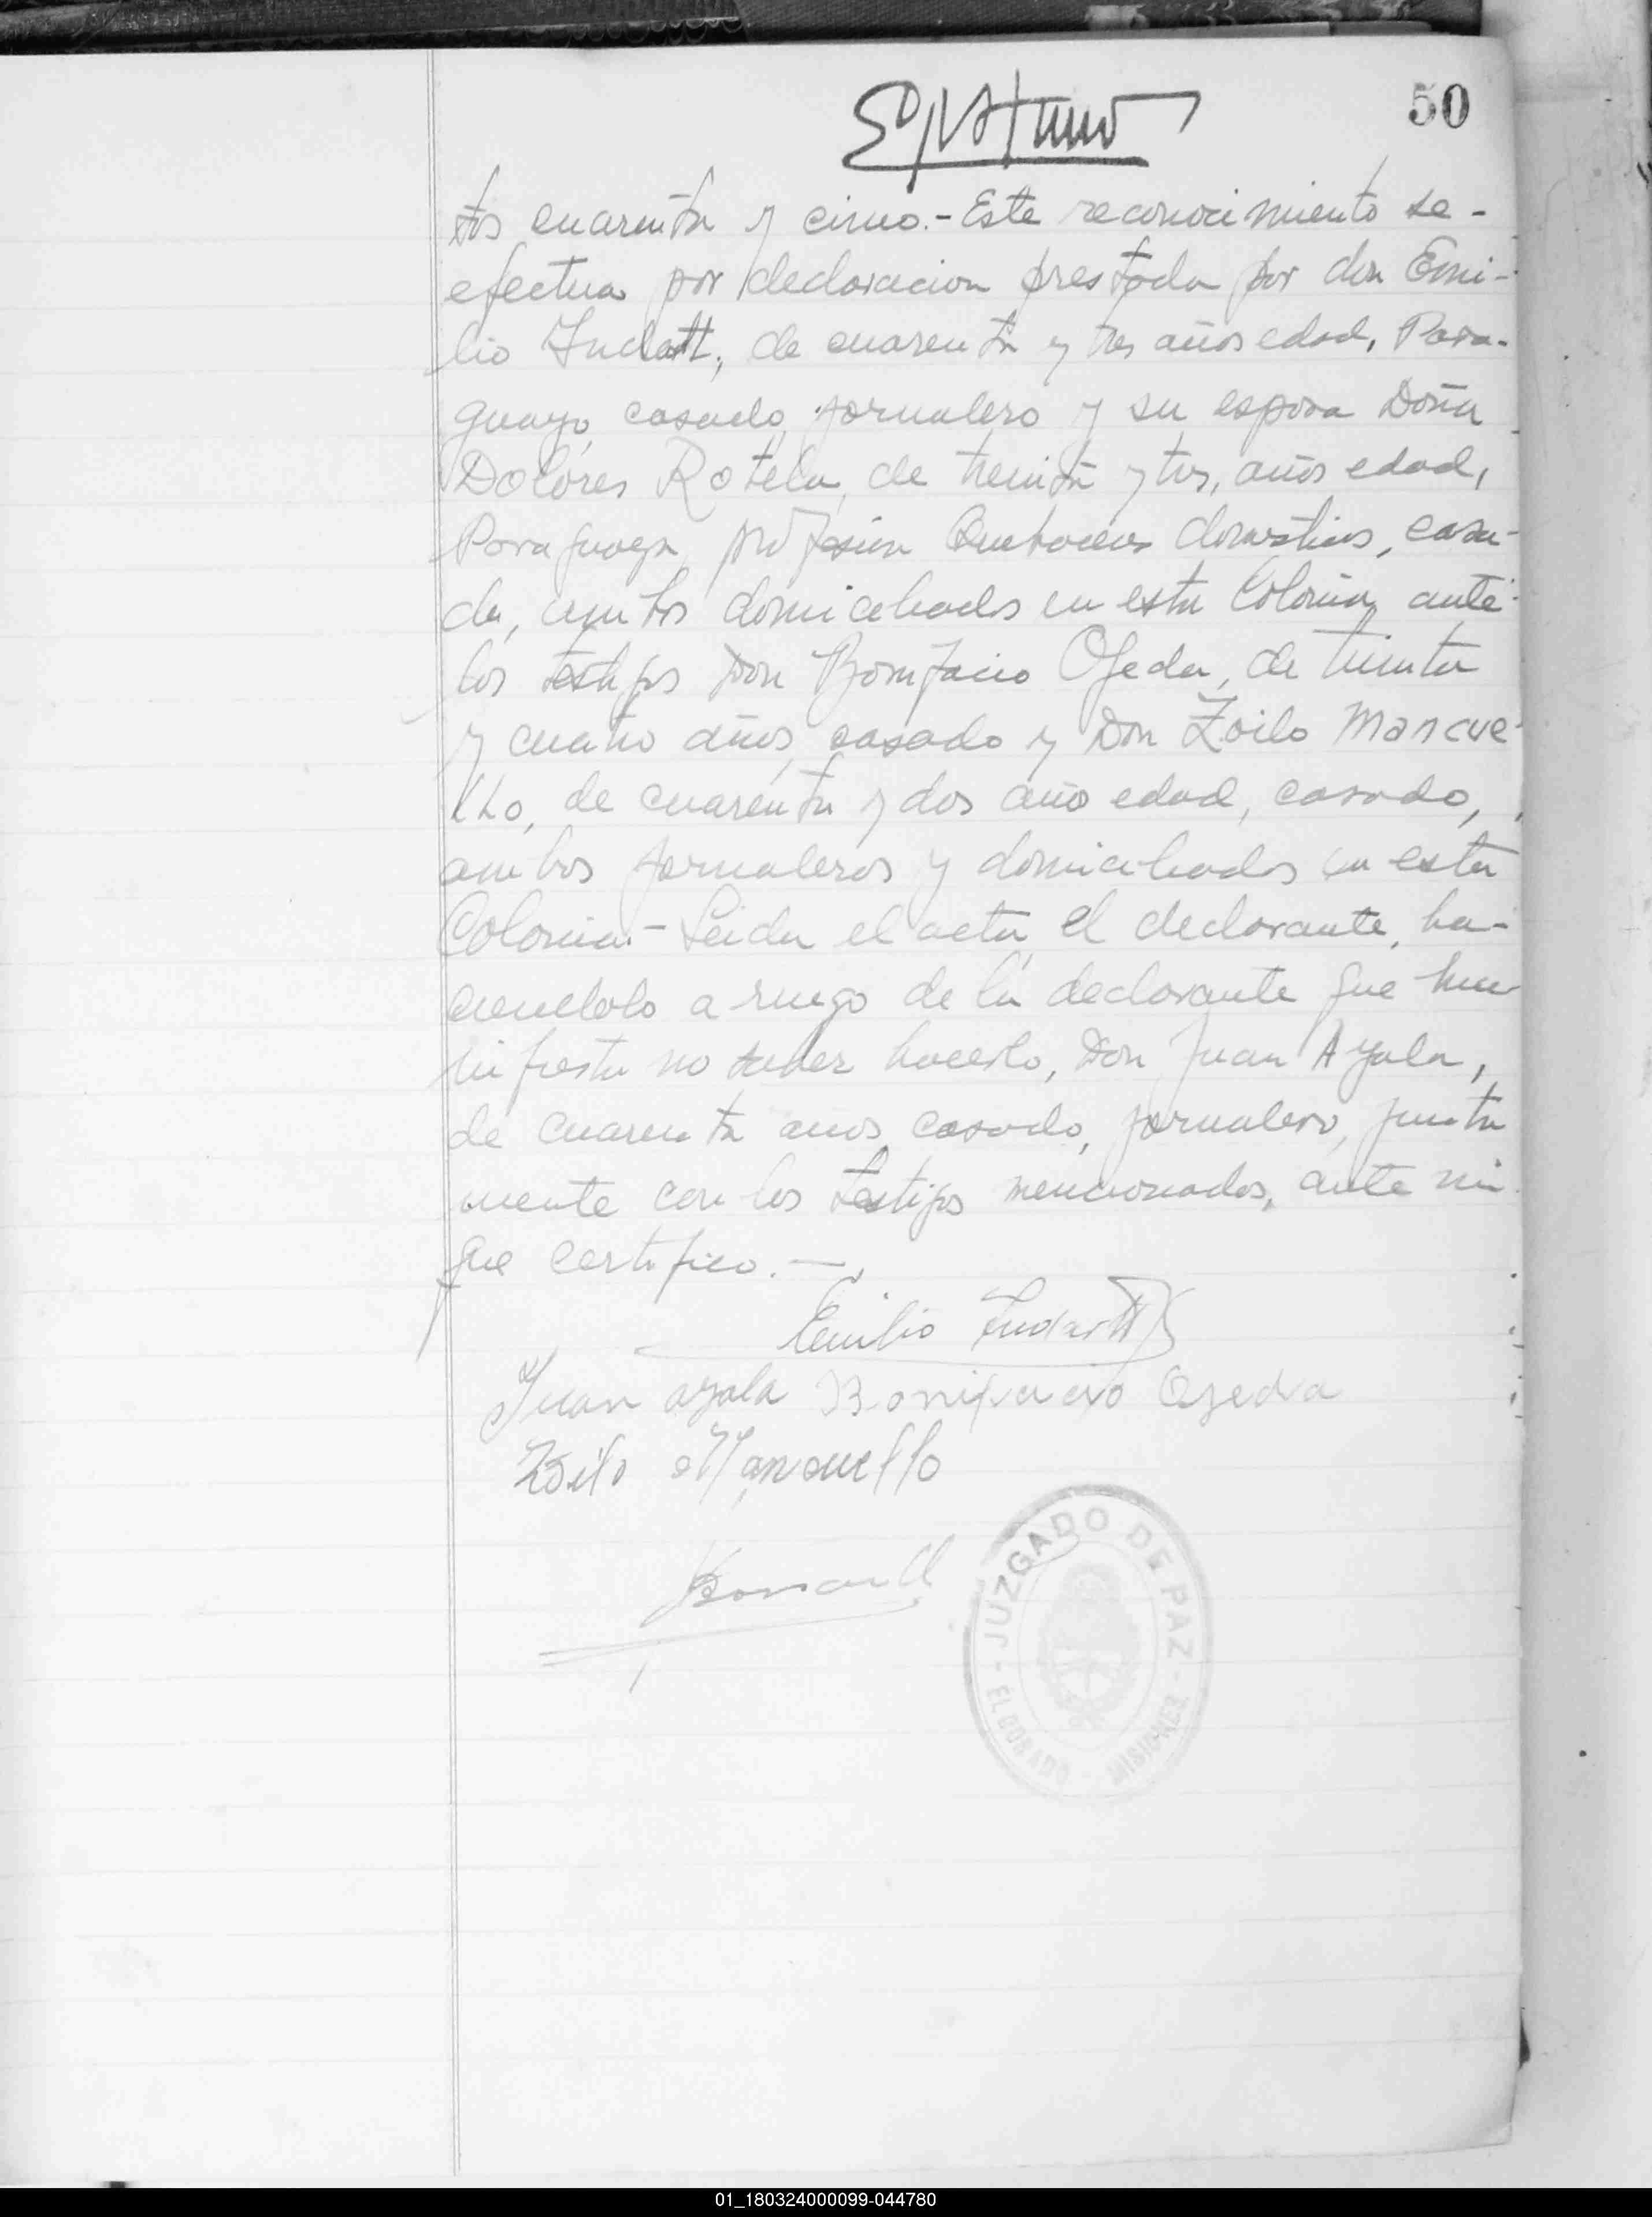 50
tos cuarenta y cinco.- Este reconocimiento se-
efectua por declaracion prestada por don Emi-
lio Indart, de cuarenta y tres años edad, Para-
guayo, casado, jornalero y su esposa Doña
Dolores Rotela, de treinta y tres, años edad,
Paraguaya, profesion Quehaceres domesticos, casa-
da, ambos domiciliados en esta Colonia, ante
los testigos Don Bonifacio Ojeda, de treinta
y cuatro años, casado y Don Zoilo Mancue-
llo, de cuarenta y dos año edad, casado,
ambos jornaleros y domiciliados en esta
Colonia.- Leida el acta, el declarante, ha-
ciendolo a ruego de la declarante que ma
nifiesta no saber hacerlo, Don Juan Ayala,
de cuarenta años, casado, jornalero, junta
mente con los testigos mencionados, ante mi
que certifico.-
Emilio Indartt
Juan ayala Bonifacio Ojeda
Zoilo Mancuello
JUZGADO DE PAZ
ELDORADO - MISIONES
01_180324000099-044780